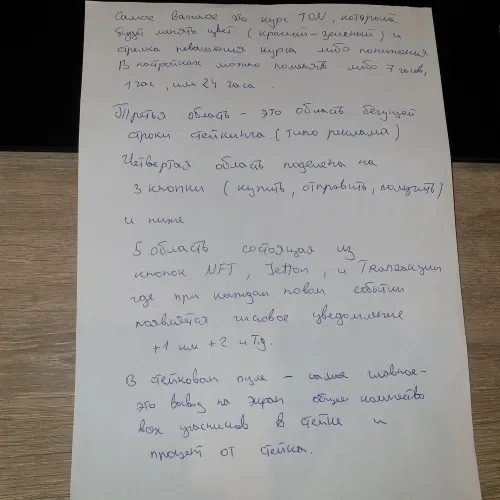 Самое важное это курс TON, который
будет менять цвет (красный-зеленый) и
стрелка повышения курса либо понижения
В настройках можно поменять либо 7 часов,
1 час, или 24 часа.
Третья область - это область бегущей
строки стейкинга (типо реклама)
Четвертая область поделена на
3 кнопки (купить, отправить, получить)
и ниже
5 область состоящая из
кнопок NFT, Jetton, и Транзакции
где при каждом новом событии
появляется числовое уведомление
+1 или +2 и т.д.
В стейковом пуле - самое главное-
это вывод на экран общее количество
всех участников в стейке и
процент от стейка.